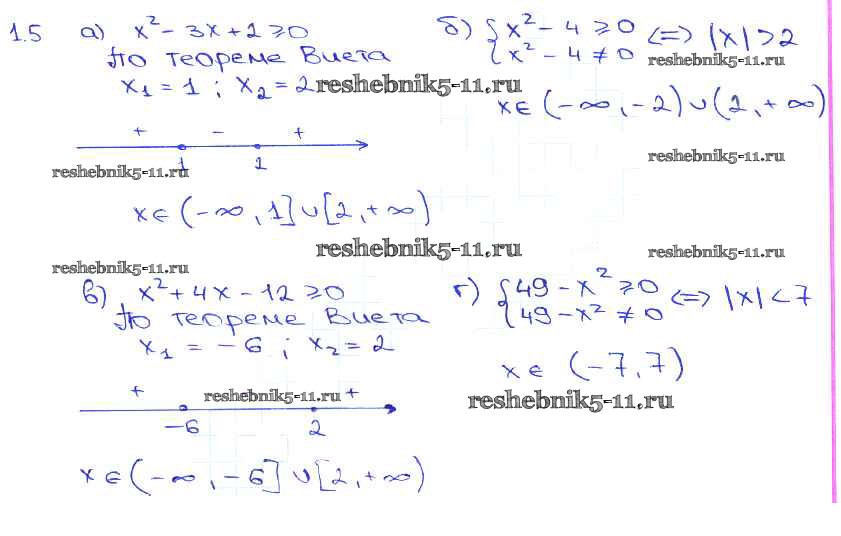 1.5 а) x² - 3x + 2 ≥ 0
По теореме Виета
x₁ = 1 ; x₂ = 2 reshebnik5-11.ru
+ - +
1 2
reshebnik5-11.ru
x ∈ (-∞, 1] ∪ [2, +∞)
б) { x² - 4 ≥ 0
x² - 4 ≠ 0 <=> |x| > 2
reshebnik5-11.ru
x ∈ (-∞, -2) ∪ (2, +∞)
reshebnik5-11.ru
reshebnik5-11.ru reshebnik5-11.ru
reshebnik5-11.ru
в) x² + 4x - 12 ≥ 0
По теореме Виета
x₁ = -6 ; x₂ = 2
+ reshebnik5-11.ru +
-6 2
x ∈ (-∞, -6] ∪ [2, +∞)
г) { 49 - x² ≥ 0
49 - x² ≠ 0 <=> |x| < 7
x ∈ (-7, 7)
reshebnik5-11.ru